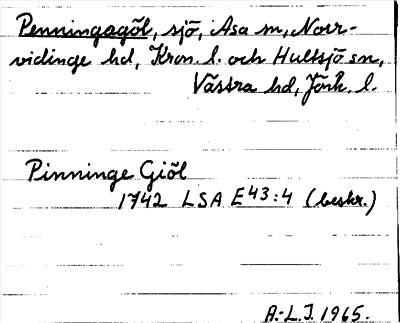 Penningagöl, sjö, Asa sn, Norr-
vidinge hd, Kron. l. och Hultsjö sn,
Västra hd, Jönk. l.
Pinninge Giöl
1742 LSA E43:4 (beskr.)
A.-L.J. 1965.